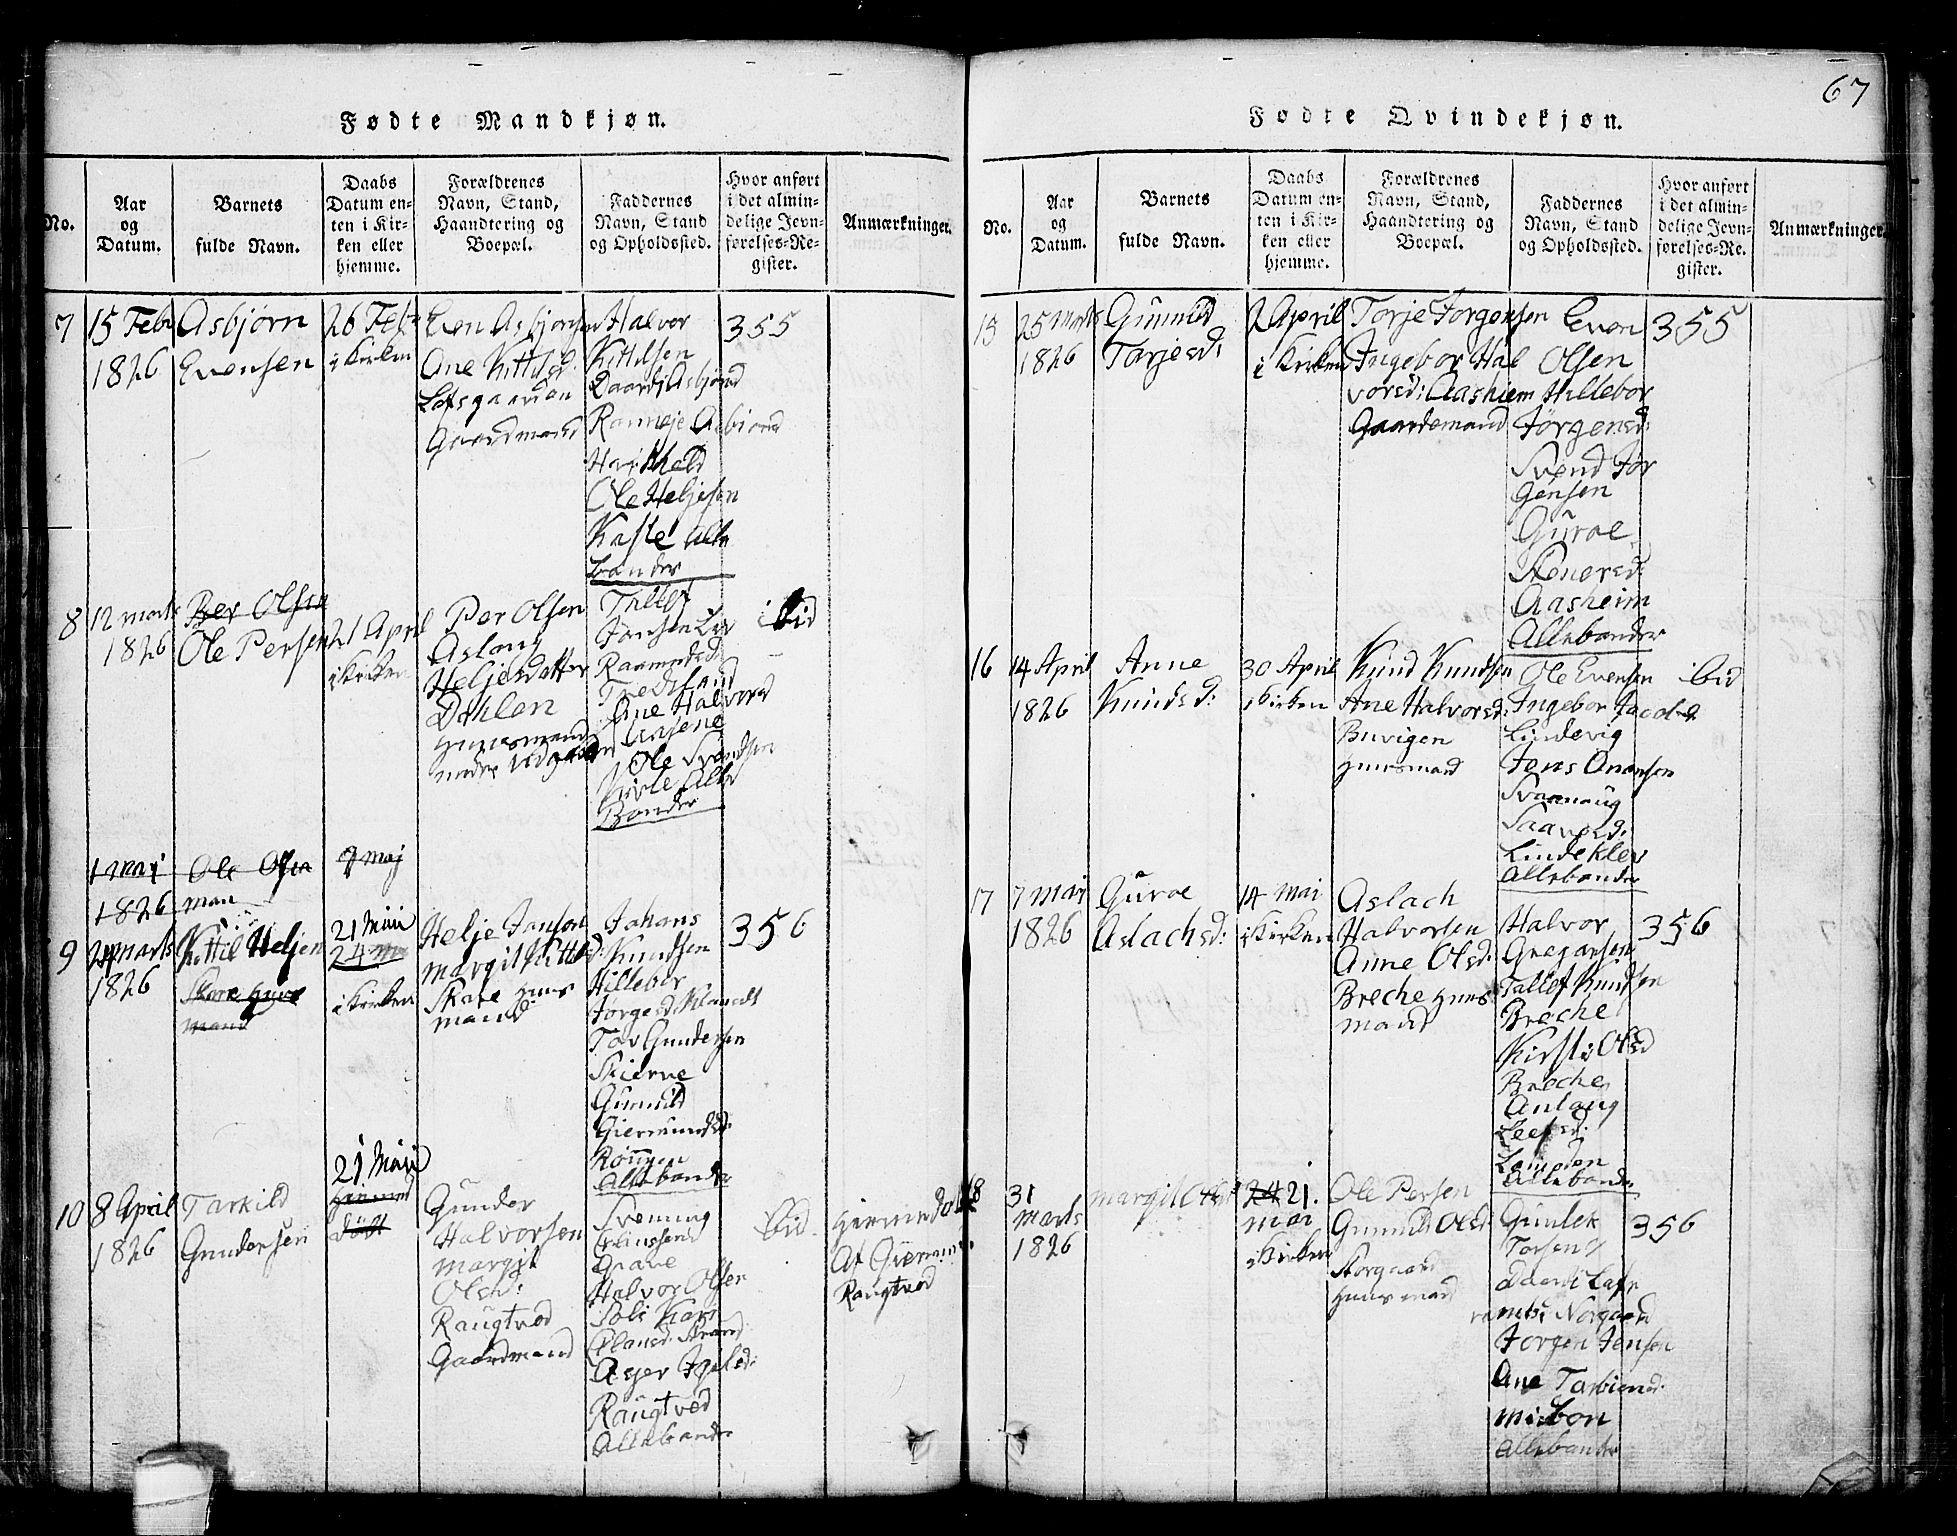 67
Fødte Mandkjøn.
No.
Aar
og
Datum.
Barnets
fulde Navn.
Daabs
Datum en-
ten i Kir-
ken eller
hjemme.
Forældrenes
Navn, Stand,
Haandtering og
Boepæl.
Faddernes
Navn, Stand
og Opholdssted.
Hvor anført
i det almin-
delige Jevn-
førelses-Re-
gister.
Anmærkninger.
7
15 Febr
1826
Asbjørn
Evensen
26 Febr
i Kirken
Even Asbjørnsen
Ane Kittilsd
Lofsgaarden
Gaardmand
Halvor
Kittilsen
Ole Heljesen
Kaste Alle
bønder
355
8
12 marts
1826
Per Olsen
Ole Persen
21 April
i Kirken
Per Olsen
Aslaug
Heljesdatter
Dahlen
Huusmand
Tellef
Jansen Lie
Ane Halvorsd
Ole Svendsen
Kivle Alle
Bønder
ibid
1 Mai
1826
Ole Olsen
9 Maj
9
24 marts
1826
Kittil Heljesen
Skare Huus
mand
21 Maii
24 M
i Kirken
Helje Jansen
Margit Kittilsd:
Skare Huus
mand
Johans
Knudsen
Hillebor
Jørgesd: Klaamdt
Tov Gundersen
Skierve
Gunnild
Giermundsd:
Rønngen
Alle bønder
356
10
8 April
1826
Tarkild
Gundersen
21 Maii
Hiemmed
døbt
Gunder
Halvorsen
Margit
Olsd:
Raugtved
Gaardmand
Svenning
Grave
Halvor Olsen
Asger
Raugtvod
Alle bønder
ibid
Hiemmedøbt
Af
Raugtvod
Fødte Qvindekjøn.
No.
Aar
og
Datum.
Barnets
fulde Navn.
Daabs
Datum en-
ten i Kir-
ken eller
hjemme.
Forældrenes
Navn, Stand,
Haandtering og
Boepæl.
Faddernes
Navn, Stand
og Opholdssted.
Hvor anført
i det almin-
delige Jevn-
førelses-Re-
gister.
Anmærkninger.
15
25 Marts
1826
Gunnild
Tarjesd:
2 April
i Kirken
Torje Jorgensen
Ingebor Hal
vorsd: Aashiem
Gaardemand
Even
Olsen
Hillebor
Jørgensd:
Svend Jør
gensen
Guroe
Aasheim
Alle bønder
355
16
14 April
1826
Anne
Knudsd:
30 April
i Kirken
Knud Knudsen
Ane Halvorsd:
Buvigen
Huusmand
Ole Evensen
Ingebor Jacobsd
Lindevig
Jens Onansen
Svaanaug
Saavesd:
Lindeklev
Alle bønder
ibid
17
7 Mai
1826
Guroe
Aslachsd:
14 Mai
i Kirken
Aslach
Halvorsen
Anne Olsd:
Breche Huus
mand
Halvor
Gregarsen
Tallef Knudsen
Breche
Kirsti Olsd
Breche
Anlaug
Leefsd:
Alle bønder
356
18
31
Marts
1826
Margit Olsd
24 21.
Mai
i Kirken
Ole Persen
Gunnild Olsd:
Storgaard
Huusmand
Gunlek
Torsens
Norgaard
Jorgen Jensen
Ane Tarbiensd:
Alle bønder
356